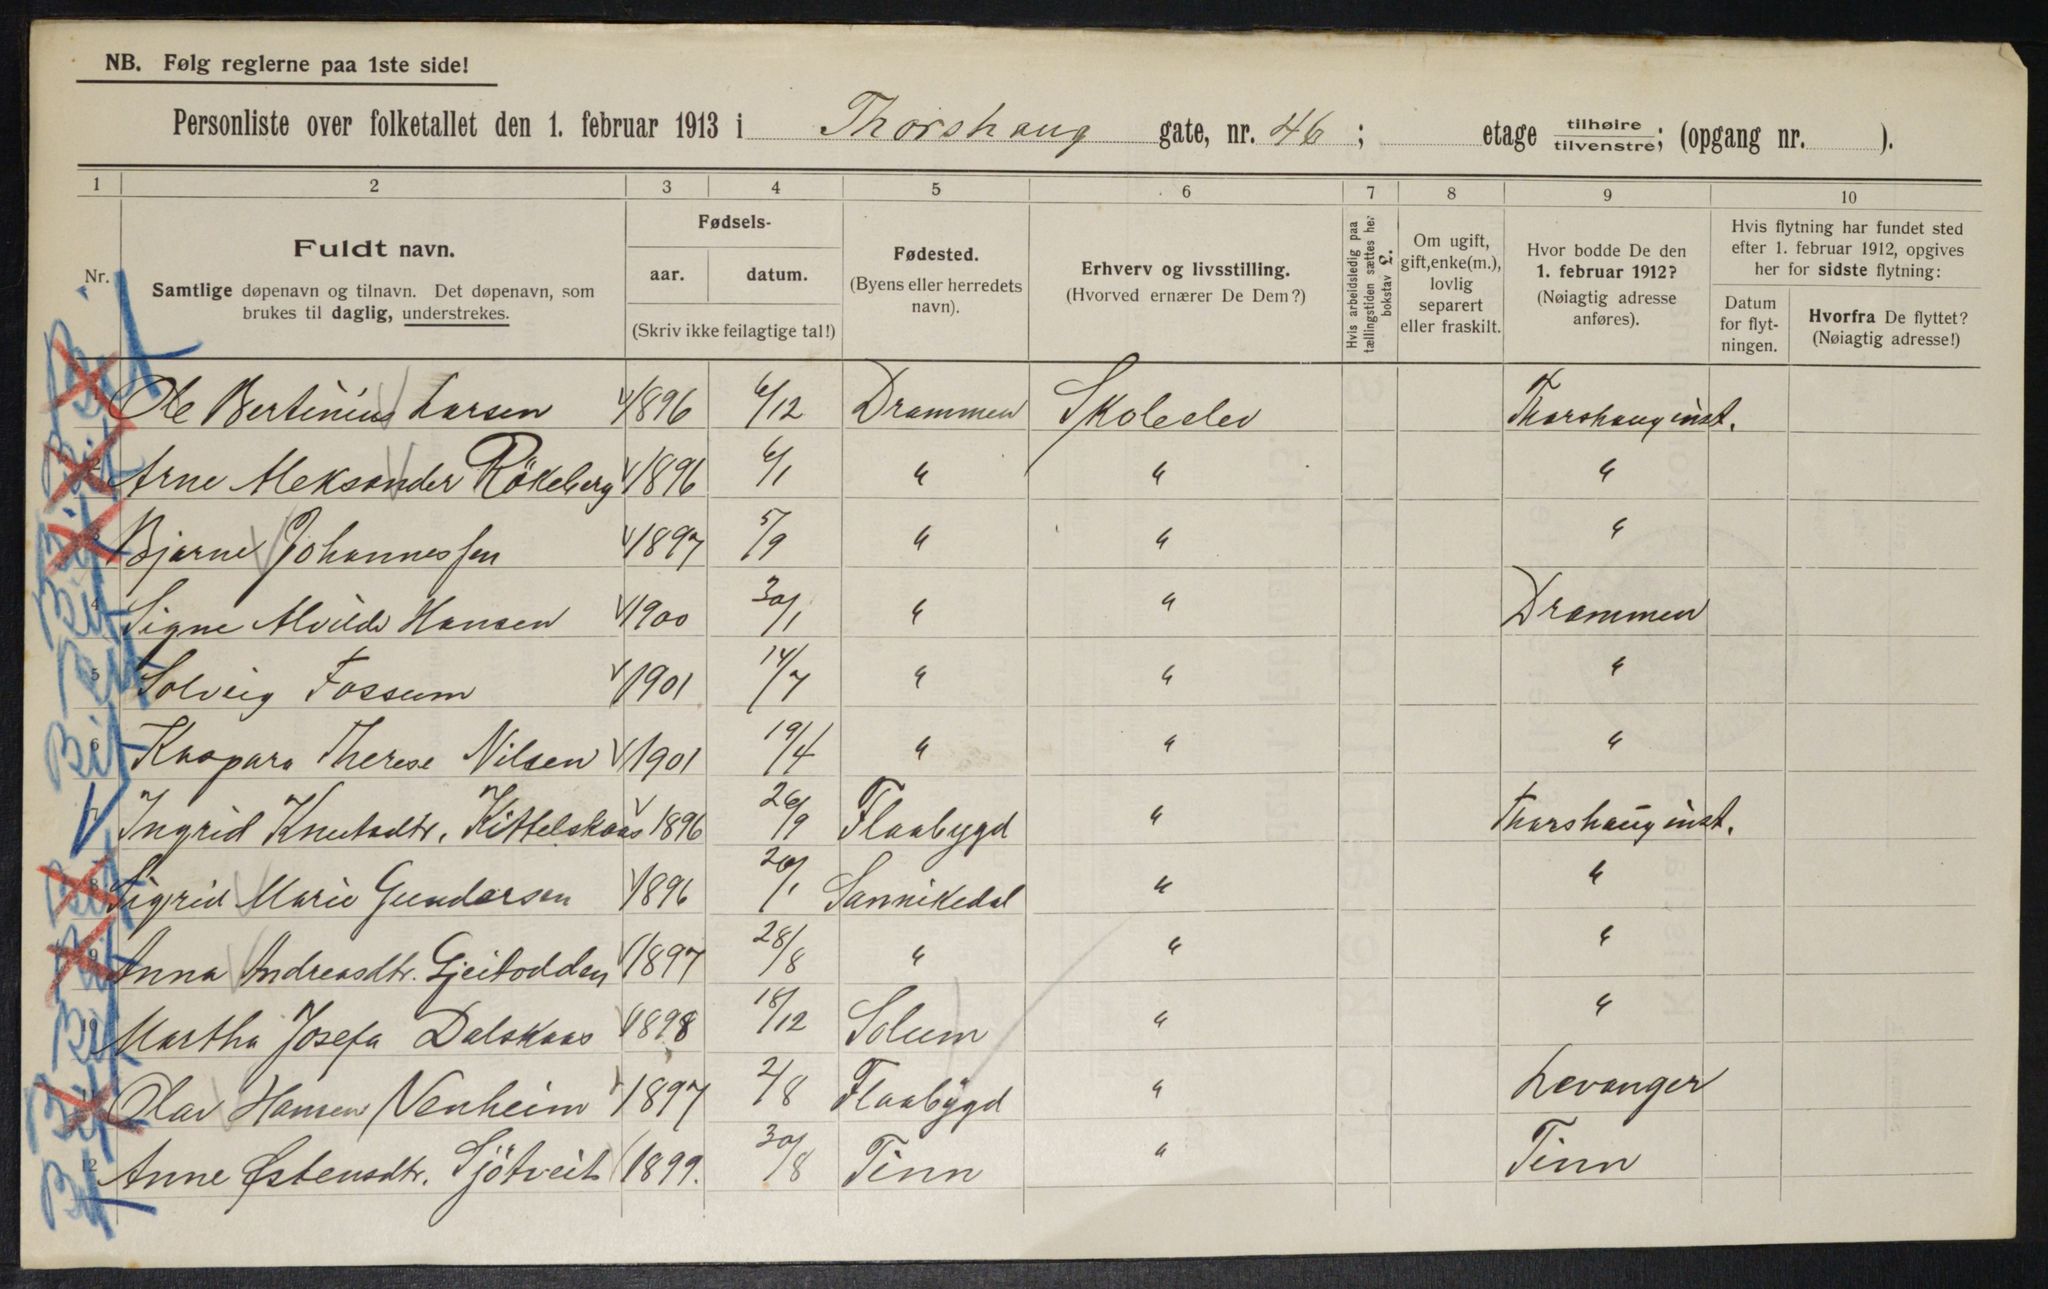 NB. Følg reglerne paa 1ste side!
Personliste over folketallet den 1. februar 1913 i Thorshaug gate, nr. 46; etage tilhøire/tilvenstre; (opgang nr. ).
1 2 3 4 5 6 7 8 9 10
Nr.
Fuldt navn.
Samtlige døpenavn og tilnavn. Det døpenavn, som
brukes til daglig, understrekes.
Fødsels-
aar. datum.
(Skriv ikke feilagtige tal!)
Fødested.
(Byens eller herredets
navn).
Erhverv og livsstilling.
(Hvorved ernærer De Dem?)
Hvis arbeidsledig paa
tællingstiden sættes her
bokstav L.
Om ugift,
gift, enke(m.),
lovlig
separert
eller fraskilt.
Hvor bodde De den
1. februar 1912?
(Nøiagtig adresse
anføres).
Hvis flytning har fundet sted
efter 1. februar 1912, opgives
her for sidste flytning:
Datum
for flyt-
ningen.
Hvorfra De flyttet?
(Nøiagtig adresse!)
Ole Bertinius Larsen 1896 6/12 Drammen Skoleelev Thorshaug inst.
Arne Aleksander Rökeberg 1896 6/1 " " "
3 Bjarne Johannessen 1897 5/9 " " "
4 Signe Alvilde Hansen 1900 30/1 " " Drammen
5 Solveig Fossum 1901 14/7 " " "
6 Kaspara Therese Nilsen 1901 19/4 " " "
7 Ingrid Knutsdtr. Kittelskaas 1896 26/9 Flaabygd " Thorshaug inst.
8 Sigrid Marie Gundersen 1896 20/1 Sannikedal " "
9 Anna Andreasdtr. Gjeitodden 1897 28/8 " " "
10 Martha Josefa Dalskaas 1898 18/12 Solum " "
11 Olav Hansen Nenheim 1897 2/8 Flaabygd " Levanger
12 Anne Østensdtr. Sjötveit 1899. 30/8 Tinn " Tinn